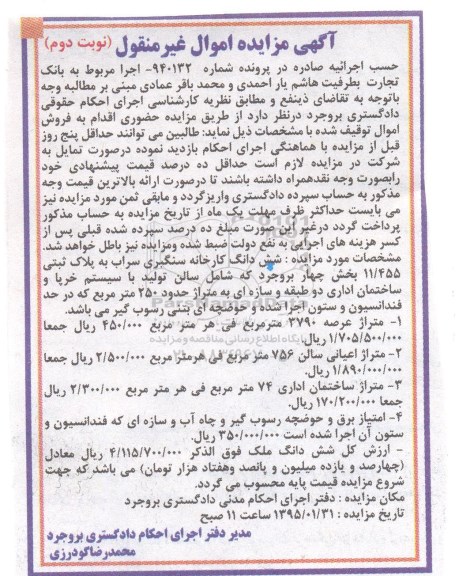 آگهی مزایده اموال غیرمنقول (نوبت دوم)
حسب اجرائیه صادره در پرونده شماره ۹۴۰۱۳۲- اجرا مربوط به بانک
تجارت بطرفیت هاشم یار احمدی و محمد باقر عمادی مبنی بر مطالبه وجه
باتوجه به تقاضای ذینفع و مطابق نظریه کارشناسی اجرای احکام حقوقی
دادگستری بروجرد درنظر دارد از طریق مزایده حضوری اقدام به فروش
اموال توقیف شده با مشخصات ذیل نماید: طالبین می توانند حداقل پنج روز
قبل از مزایده با هماهنگی اجرای احکام بازدید نموده درصورت تمایل به
شرکت در مزایده لازم است حداقل ده درصد قیمت پیشنهادی خود
رابصورت وجه نقدهمراه داشته باشند تا درصورت ارائه بالاترین قیمت وجه
مذکور به حساب سپرده دادگستری واریزگردد و مابقی ثمن مورد مزایده نیز
می بایست حداکثر ظرف مهلت یک ماه از تاریخ مزایده به حساب مذکور
پرداخت گردد درغیر این صورت مبلغ ده درصد سپرده شده قبلی پس از
کسر هزینه های اجرایی به نفع دولت ضبط شده ومزایده نیز باطل خواهد شد.
مشخصات مورد مزایده : شش دانگ کارخانه سنگبری سراب به پلاک ثبتی
۱۱/۴۵۵ بخش چهار بروجرد که شامل سالن تولید با سیستم خرپا و
ساختمان اداری دو طبقه و سازه ای به متراژ حدود ۲۵۰ متر مربع که در حد
فندانسیون و ستون اجرا شده و حوضچه ای بتنی رسوب گیر می باشد.
۱- متراژ عرصه ۳۷۹۰ مترمربع فی هر متر مربع ۴۵۰/۰۰۰ ریال جمعا
۱/۷۰۵/۵۰۰/۰۰۰ ریال.
۲- متراژ اعیانی سالن ۷۵۶ متر مربع فی هرمتر مربع ۲/۵۰۰/۰۰۰ ریال جمعا
۱/۸۹۰/۰۰۰/۰۰۰ ریال.
۳- متراژ ساختمان اداری ۷۴ متر مربع فی هر متر مربع ۲/۳۰۰/۰۰۰ ریال
جمعا ۱۷۰/۲۰۰/۰۰۰ ریال.
۴- امتیاز برق و حوضچه رسوب گیر و چاه آب و سازه ای که فندانسیون و
ستون آن اجرا شده است ۳۵۰/۰۰۰/۰۰۰ ریال.
- ارزش کل شش دانگ ملک فوق الذکر ۴/۱۱۵/۷۰۰/۰۰۰ ریال معادل
(چهارصد و یازده میلیون و پانصد وهفتاد هزار تومان) می باشد که جهت
شروع مزایده قیمت پایه محسوب می گردد.
مکان مزایده : دفتر اجرای احکام مدنی دادگستری بروجرد
تاریخ مزایده : ۱۳۹۵/۰۱/۳۱ ساعت ۱۱ صبح
مدیر دفتر اجرای احکام دادگستری بروجرد
محمدرضا گودرزی